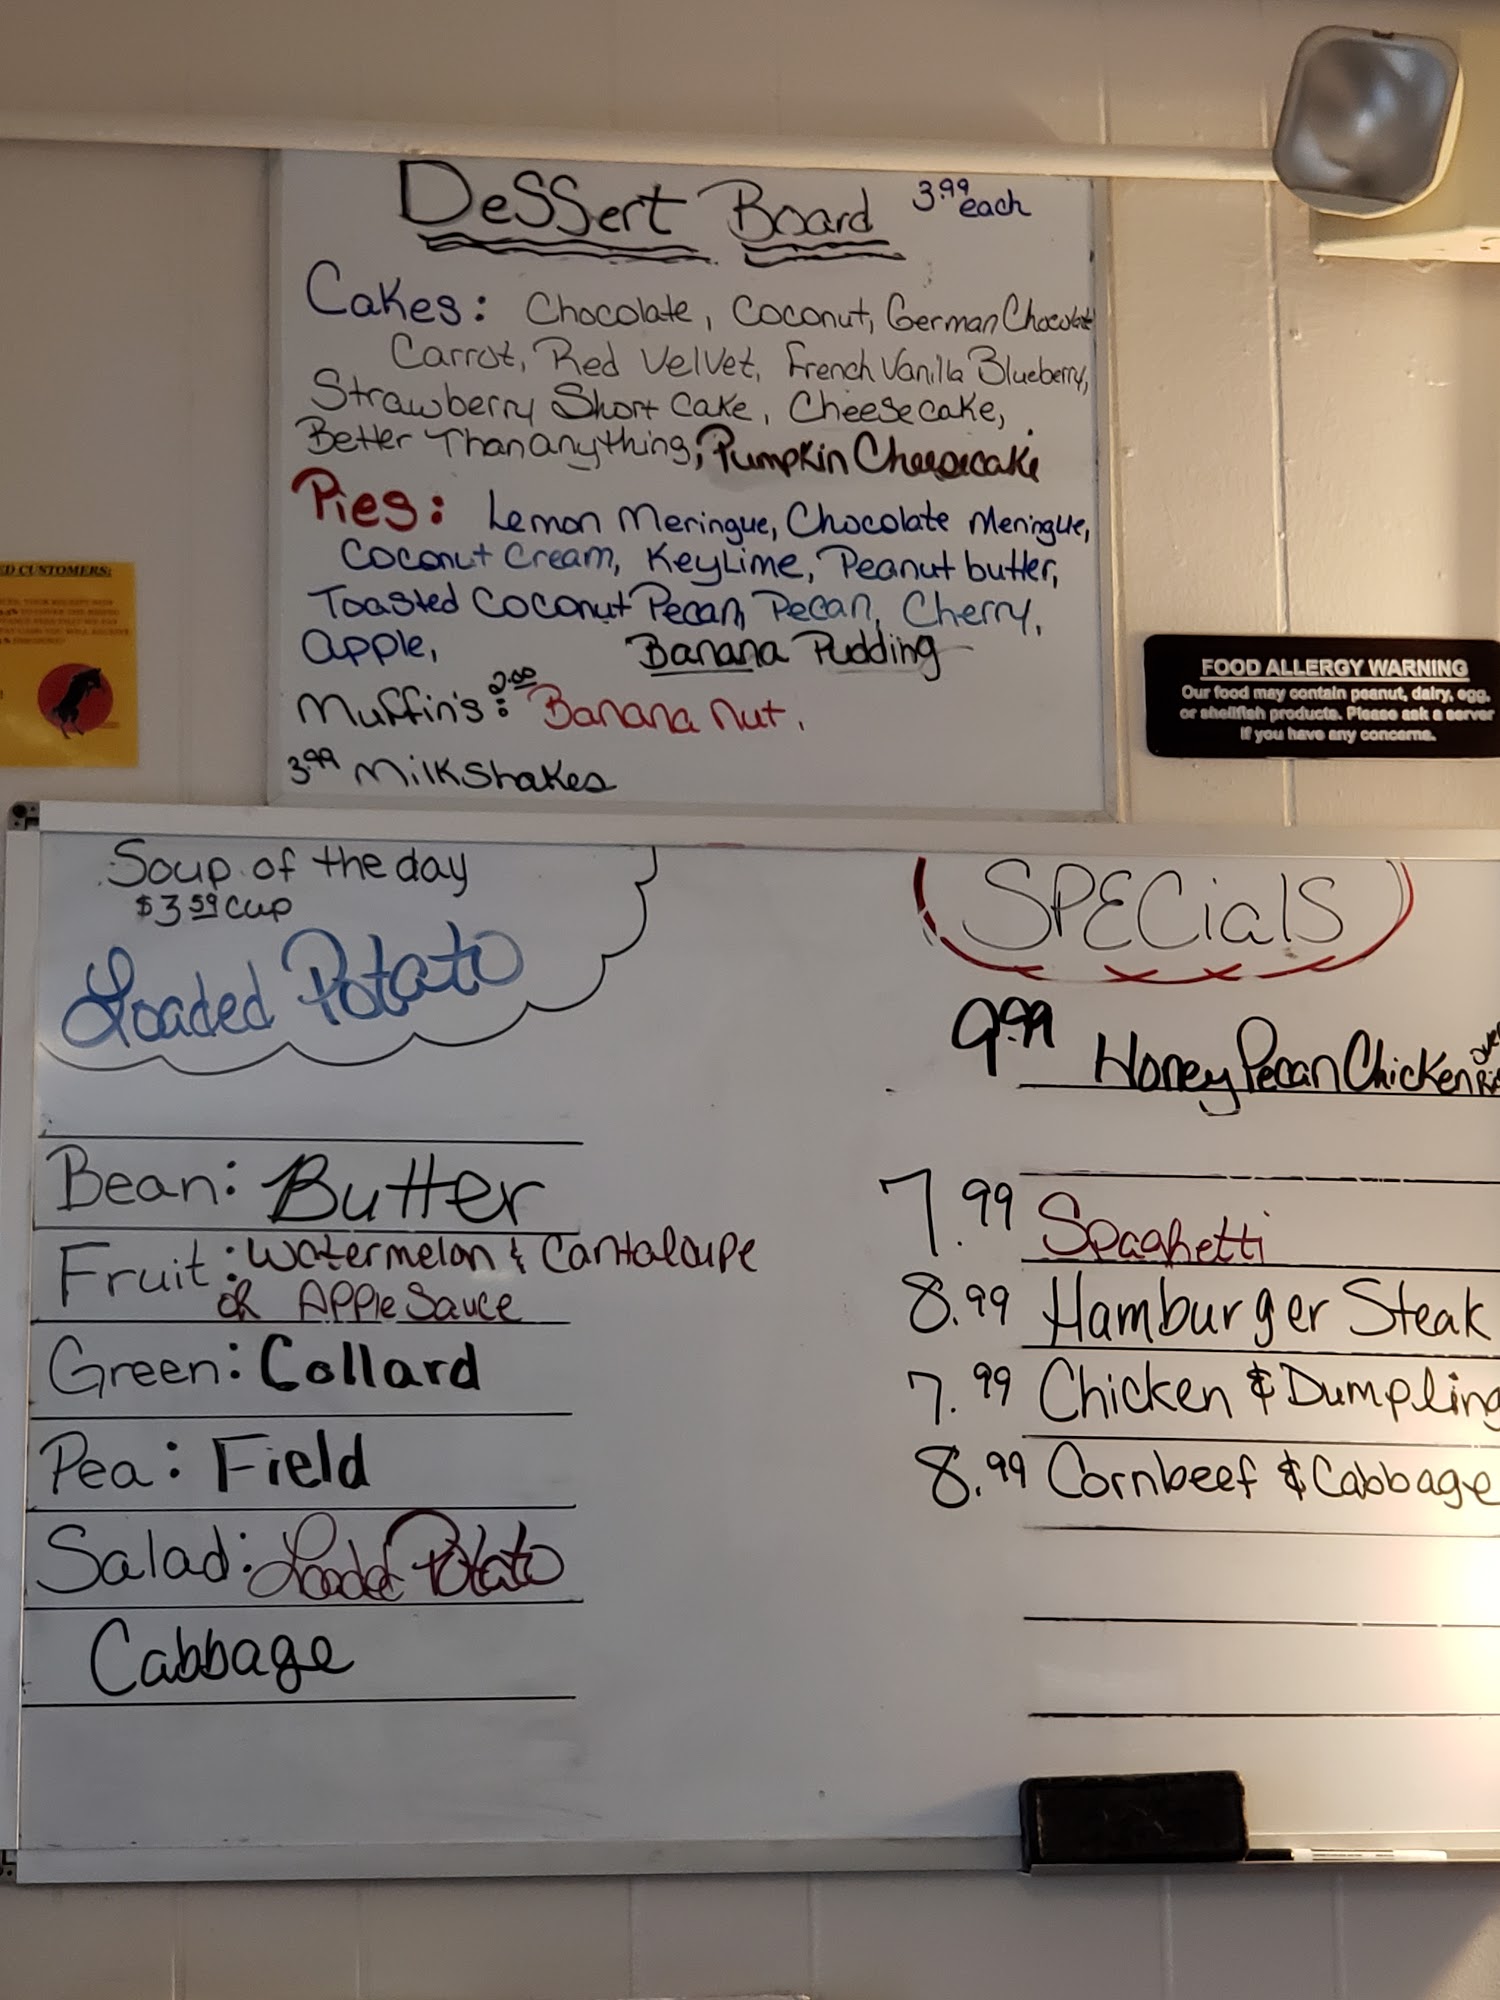 DeSSert Board 3.99 each
Cakes: Chocolate, Coconut, German Chocolate
Carrot, Red Velvet, French Vanilla Blueberry,
Strawberry Short Cake, Cheesecake,
Better Than anything, Pumpkin Cheesecake
Pies: Lemon Meringue, Chocolate Meringue,
Coconut Cream, KeyLime, Peanut butter,
Toasted Coconut Pecan, Pecan, Cherry,
apple, Banana Pudding
Muffin's: 2.00 Banana nut,
3.99 MilkShakes
ED CUSTOMERS:
FOOD ALLERGY WARNING
Our food may contain peanut, dairy, egg,
or shellfish products. Please ask a server
if you have any concerns.
Soup of the day
$3.59 Cup
Loaded Potato
Bean: Butter
Fruit: Watermelon & Cantaloupe
OR APPle Sauce
Green: Collard
Pea: Field
Salad: Loaded Potato
Cabbage
SPECialS
9.99 Honey Pecan Chicken
7.99 Spaghetti
8.99 Hamburger Steak
7.99 Chicken & Dumpling
8.99 Cornbeef & Cabbage